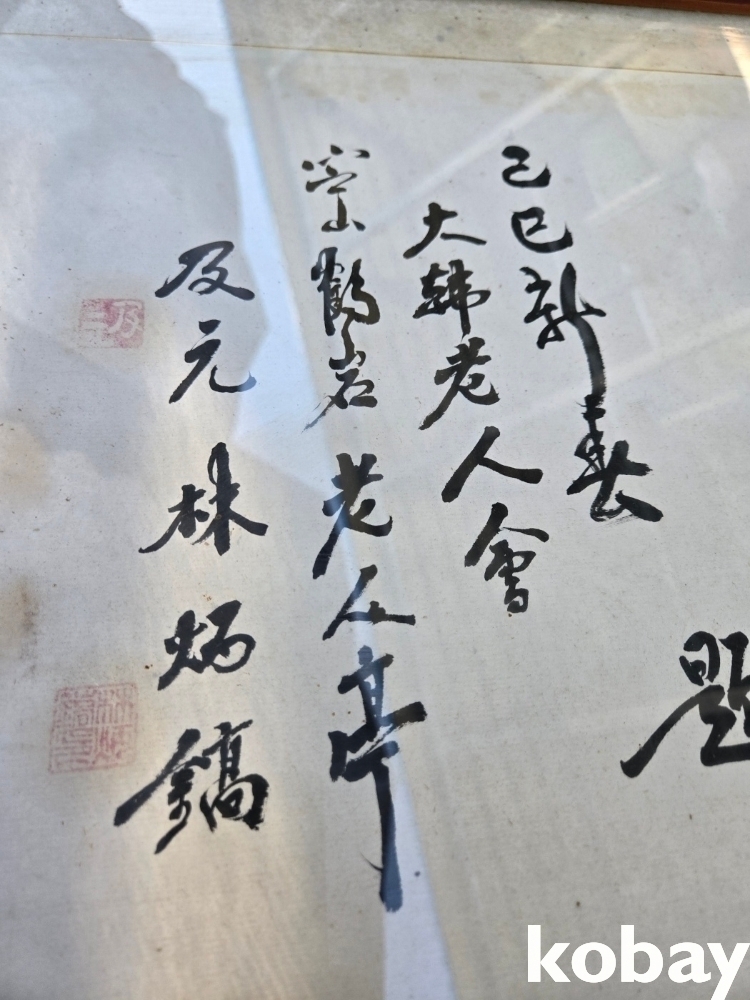 題
己巳新春
大韓老人會
鶴岩老人亭
及元林炳鎬
kobay